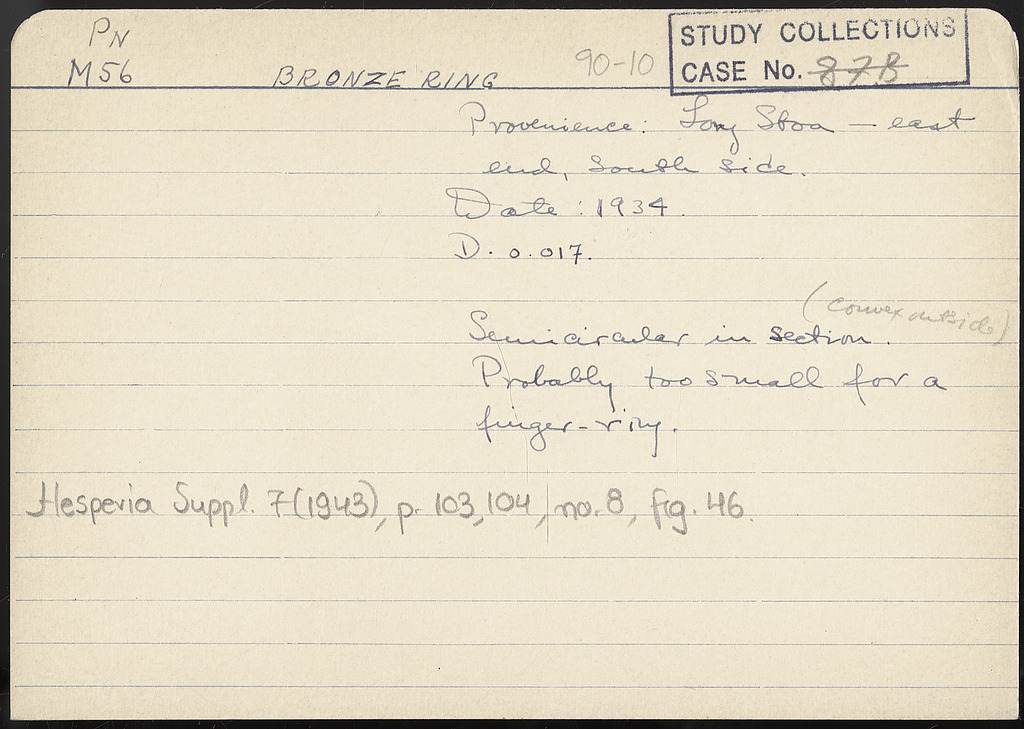 PN
M56
BRONZE RING
90-10
STUDY COLLECTIONS
CASE No. 87B
Provenience: Long Stoa – east
end, South side.
Date : 1934.
D. 0.017.
(convex outside)
Semicircular in section.
Probably too small for a
finger-ring.
Hesperia Suppl. 7(1943), p. 103,104, no. 8, fig. 46.